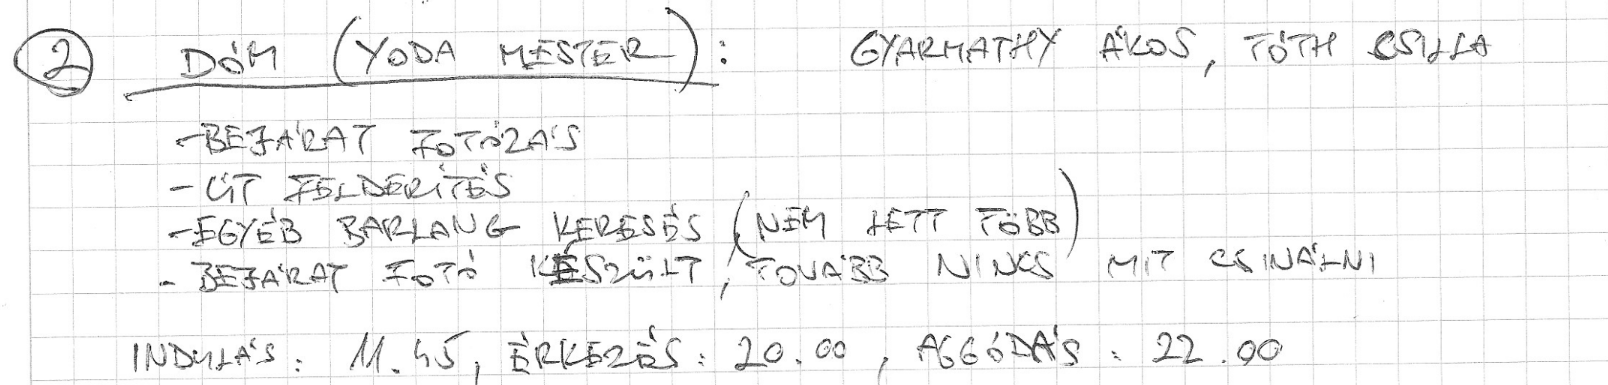 2 DÓM (YODA MESTER): GYARMATHY ÁKOS, TÓTH CSILLA
-BEJÁRAT FOTÓZÁS
- ÚT FELDERÍTÉS
-EGYÉB BARLANG KERESÉS (NEM LETT TÖBB)
- BEJÁRAT FOTÓ KÉSZÜLT, TOVÁBB NINCS MIT CSINÁLNI
INDULÁS: 11.45, ÉRKEZÉS: 20.00, AGGÓDÁS: 22.00